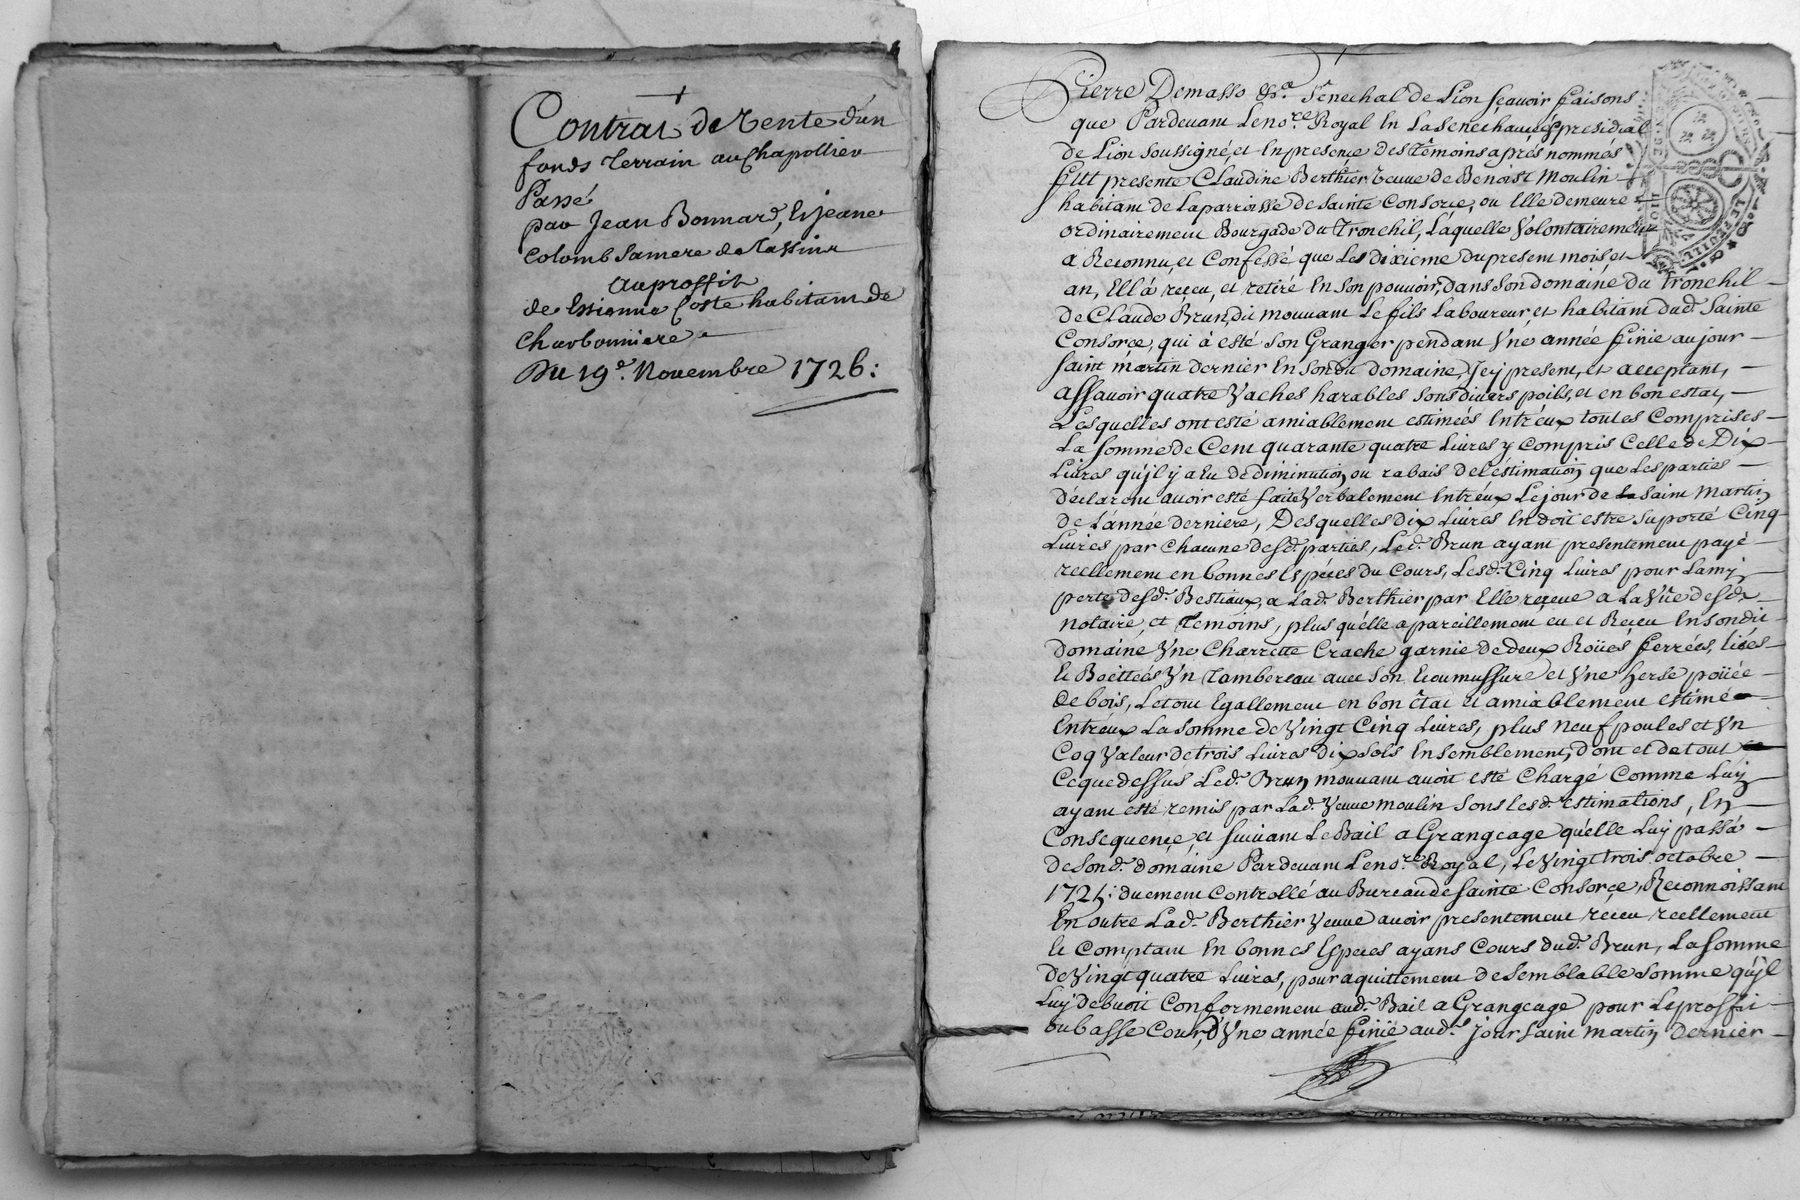 Contrat de Vente d'un
fonds Terrain au Chapollieu
Passé
par Jean Bonnard, Et Jeanne
Colomb sa mere de Tassina
Au proffit
de Estienne Coste habitant de
Charbonniere
Du 19e. Novembre 1726:
Pierre Demasso Senechal de Lion sçavoir faisons
que Pardevant Le nore. Royal En La Senechaussée presidial
de Lion soussigné, et En presence des Témoins aprés nommés
fut presente Claudine Berthier Veuve de Benoist Moulin
habitant de La parroisse de Sainte Consorce, ou Elle demeure
ordinairement Bourgade du Tronchil, Laquelle Volontairement
a Reconnu, et Confessé que Les dixieme du present mois, et
an, Ell'a reçeu, et retiré En son pouvoir, dans son domaine du Tronchil
de Claude Brun, dit mouvant Le fils Laboureur, et habitant dud. Sainte
Consorce, qui à esté son Granger pendant Une année finie au jour
saint martin dernier En sondit domaine, Jcy present, et acceptant,
assavoir quatre Vaches harables sous divers poils, et en bon estat,
Lesquelles ont esté amiablement estimées Entréux toutes Comprises
La somme de Cent quarante quatre Livres y Compris Celle de Dix
Livres qu'jl y a Eu de diminution ou rabais de l'éstimation que Les parties
déclarent avoir esté faite Verbalement Entréux Le jour de La Saint Martin
de L'année derniere, Desquelles dix Livres En doit estre suporté Cinq
Livres par Chacune desd. parties, Led. Brun ayant presentement payé
reellement en bonnes Especes du Cours, Lesd. Cinq Livres pour La my
perte desd. Bestiaux, a Lad. Berthier par Elle reçeue a La Vûe desd.
notaire, et Témoins, plus qu'élle a pareillement eu et Reçeu En sondit
domaine Une Charrette garnie de deux Roües ferrées, liées
Et Boëttées Un Tambereau avec son et Une herse
de bois, Le tout Egallement en bon état Et amiablement estimé
Entréux La somme de Vingt Cinq Livres, plus neuf poules et Un
Coq Valeur de trois Livres dix sols Ensemblement, dont et de tout
Ce que dessus Led. Brun mouvant avoit esté Chargé Comme Luy
ayant esté remis par Lad. Veuve Moulin sous Lesd. estimations, En
Consequence, et suivant Le Bail a Grangeage qu'elle Luy passa
de sond. domaine Pardevant Le nore. Royal, Le Vingt trois octobre
1725: duement Controllé au Bureau de Sainte Consorce, Reconnoissant
En outre Lad. Berthier Veuve avoir presentement reçeu reellement
Et Comptant En bonnes Especes ayans Cours dud. Brun, La somme
de Vingt quatre Livres, pour aquittement de semblable somme qu'jl
Luy debvoit Conformement aud. Bail a Grangeage pour Le proffit
ou basse Cour, d'Une année finie aud. Jour saint martin dernier